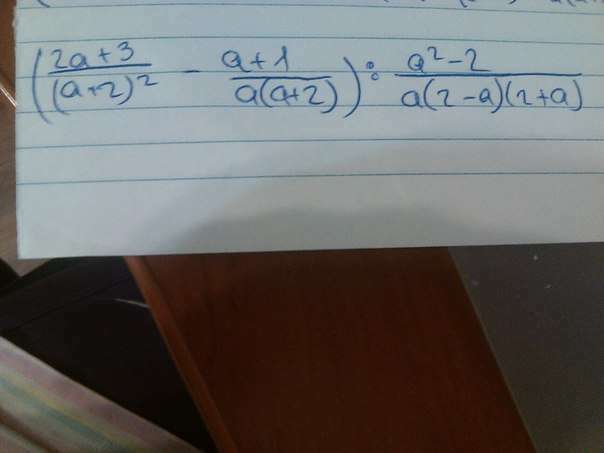 (\frac{2a+3}{(a+2)^2} - \frac{a+1}{a(a+2)}) : \frac{a^2-2}{a(2-a)(2+a)}